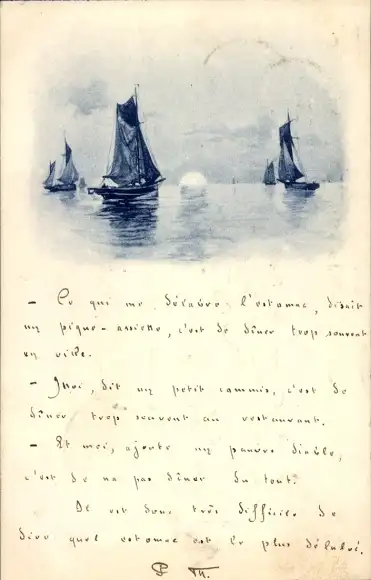 - Ce qui me délabre l'estomac, disait
un pique-assiette, c'est de dîner trop souvent
en ville.
- Moi, dit un petit commis, c'est de
dîner trop souvent au restaurant.
- Et moi, ajoute un pauvre diable,
c'est de ne pas dîner du tout.
Il est donc très difficile de
dire quel estomac est le plus délabré.
P Th.